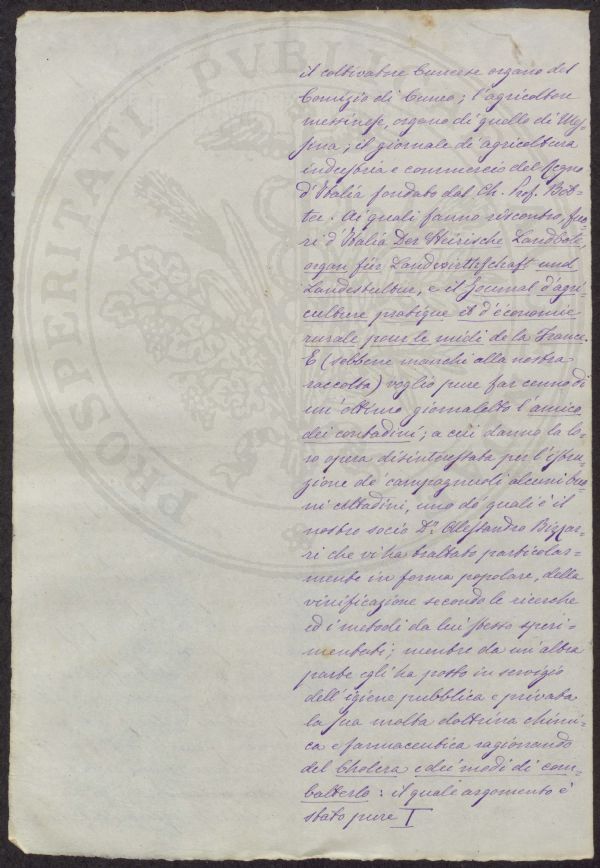 il coltivatore Cuneese organo del
Comizio di Cuneo; l'agricoltore
messinese, organo di quello di Mes-
sina; il giornale di agricoltura
industria e commercio del Regno
d'Italia fondato dal Ch. Prof. Bot-
ter. Ai quali fanno riscontro, fuo-
ri d'Italia Der Steirische Landbote,
organ für Landwirthschaft und
Landeskultur, e il Journal d'agri-
culture pratique et d'économie
rurale pour le midi de la France.
E (sebbene manchi alla nostra
raccolta) voglio pure far cenno di
un'ottimo giornaletto l'amico
dei contadini; a cui danno la lo-
ro opera disinteressata per l'istru-
zione de' campagnuoli alcuni buo-
ni cittadini, uno de' quali è il
nostro socio Dr. Alessandro Bizzar-
ri che vi ha trattato particolar-
mente in forma popolare, della
vinificazione secondo le ricerche
ed i metodi da lui stesso speri-
mentati; mentre da un'altra
parte egli ha posto in servigio
dell'igiene pubblica e privata
la sua molta dottrina chimi-
ca e farmaceutica ragionando
del Cholera e dei modi di com-
batterlo: il quale argomento è
stato pure I
PROSPERITATI PVBLI